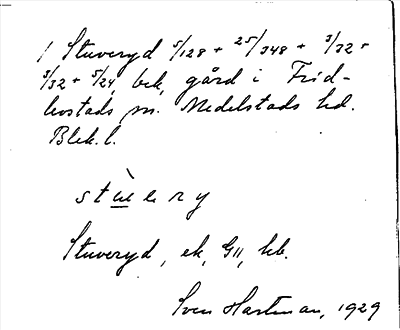 1 Stuveryd 5/128 + 25/348 + 3/32 +
3/32 + 5/24, bek, gård i Frid-
levstads sn. Medelstads hd.
Blek. l.
stu̲e r y
Stuveryd, ek, G11, hb.
Sven Hartman, 1929